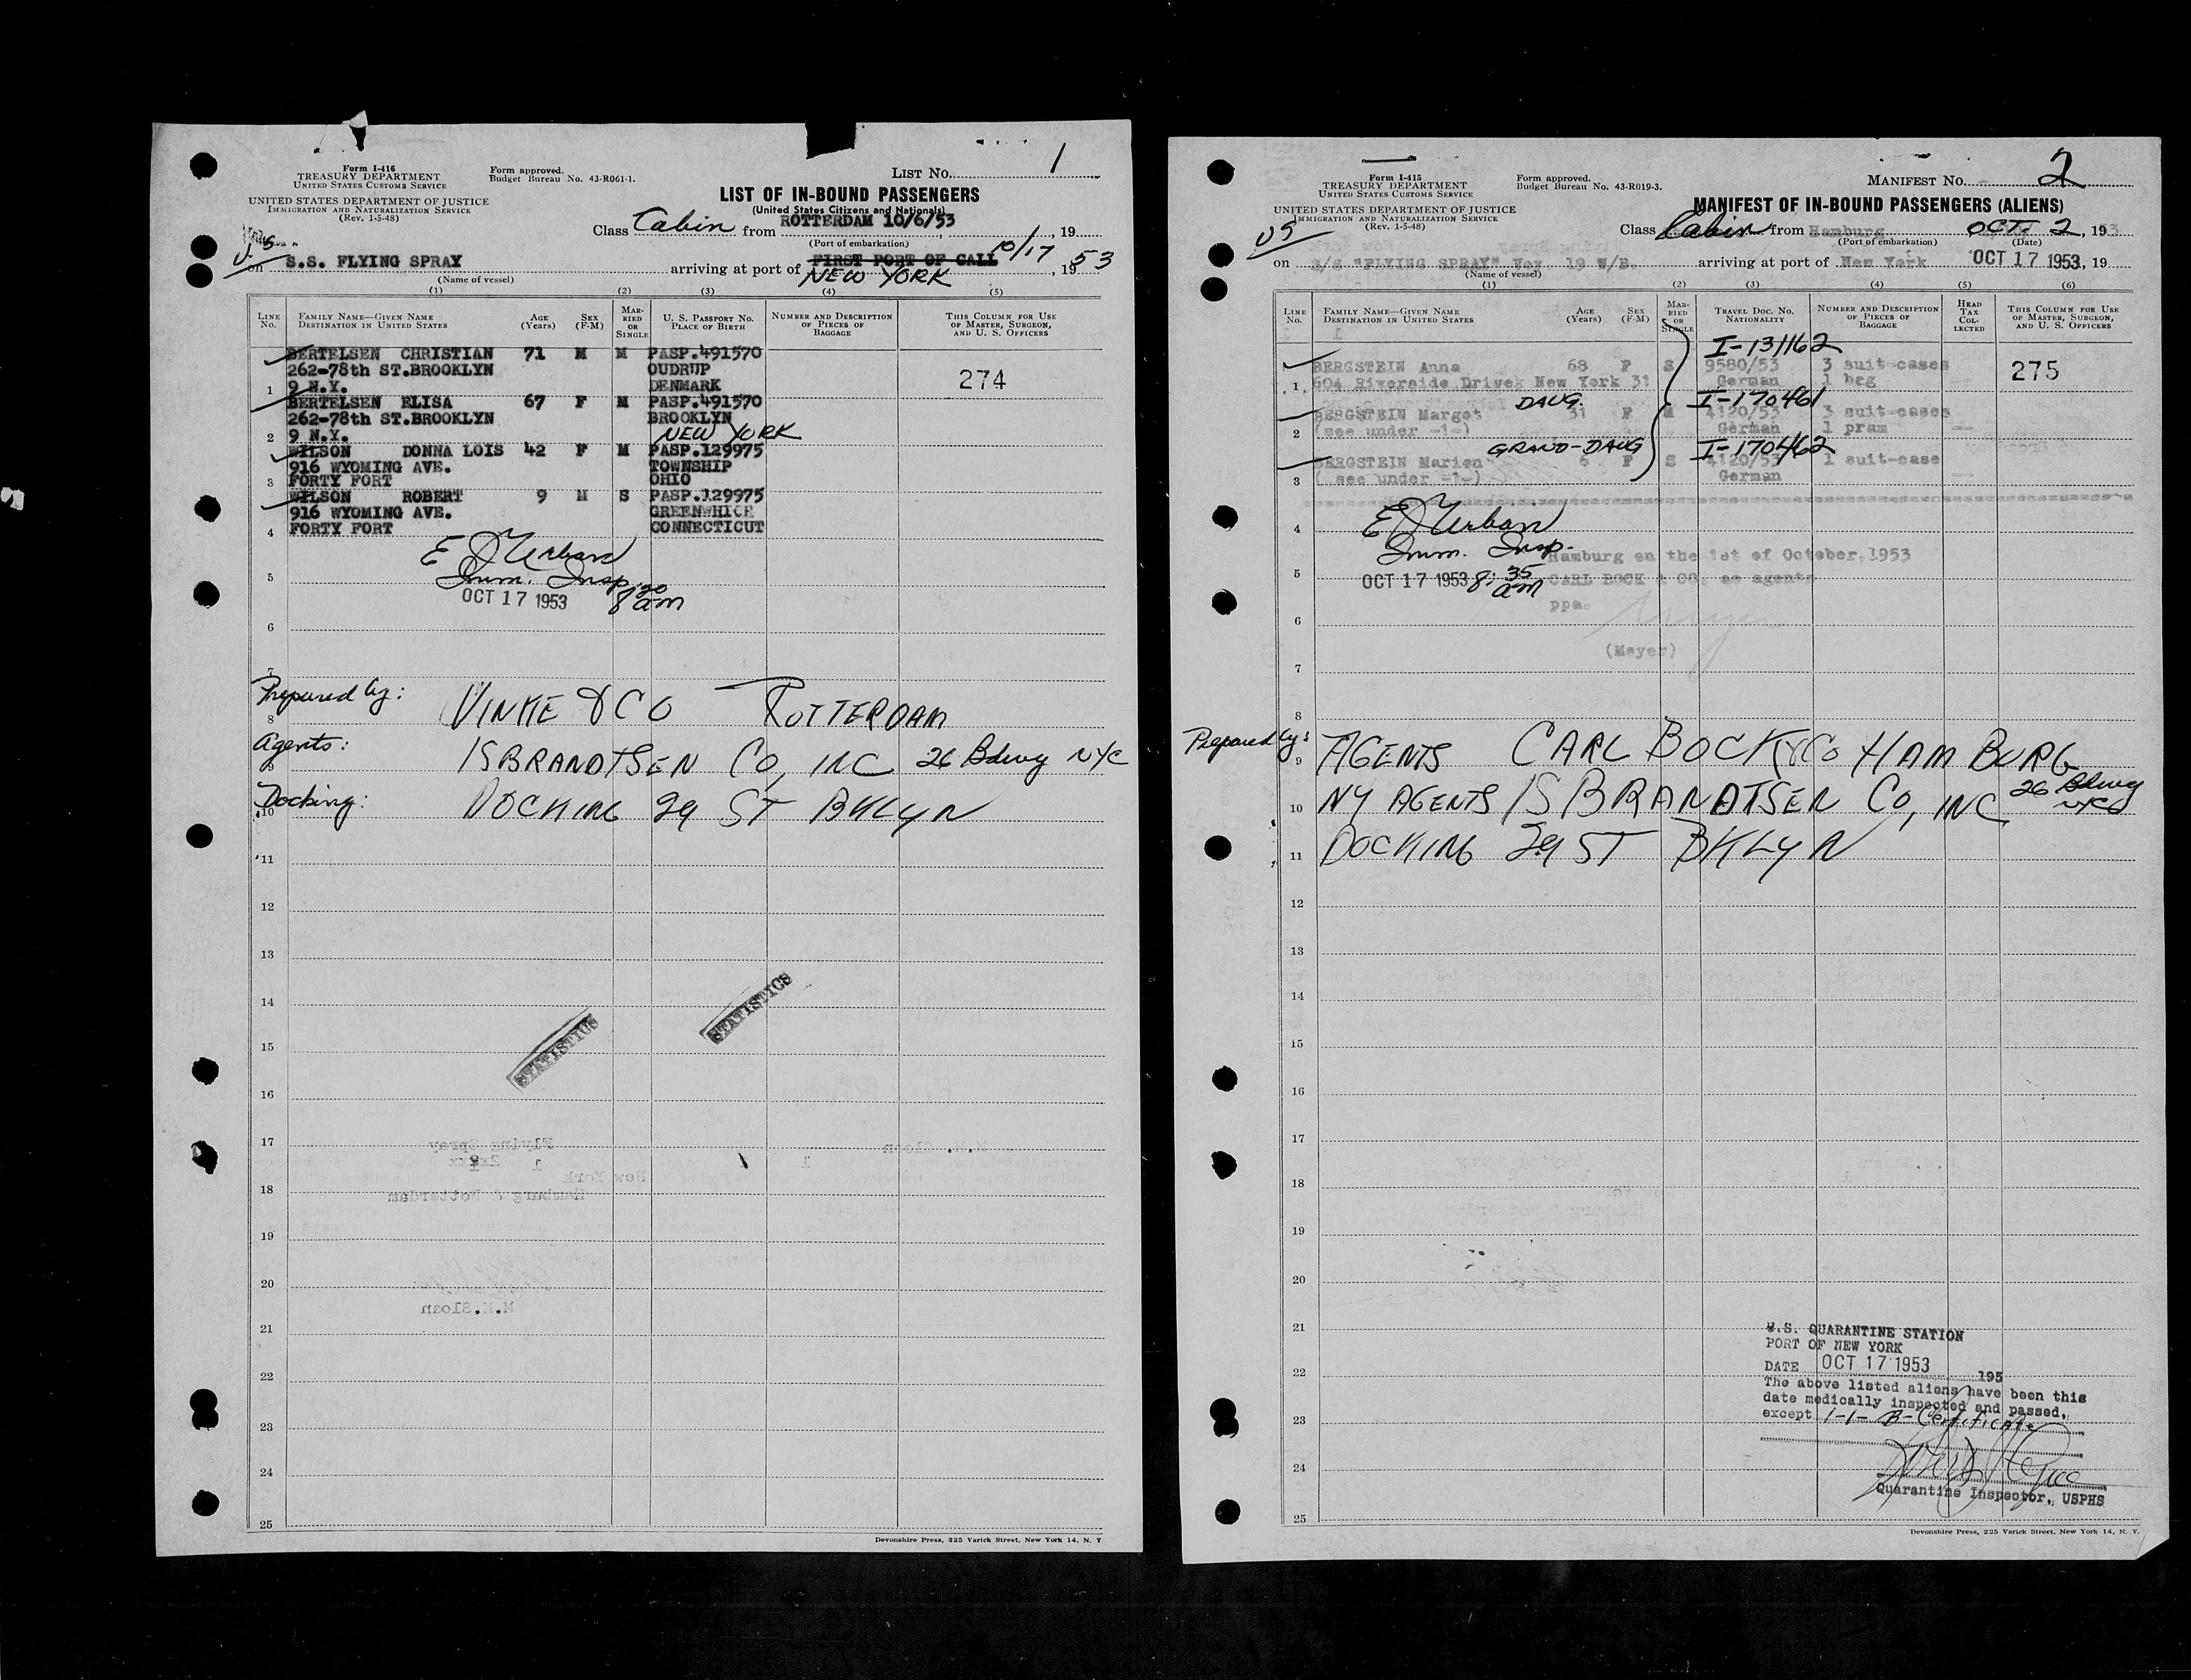 Form I-416
TREASURY DEPARTMENT
UNITED STATES CUSTOMS SERVICE
UNITED STATES DEPARTMENT OF JUSTICE
IMMIGRATION AND NATURALIZATION SERVICE
(Rev. 1-5-48)
Form approved.
Budget Bureau No. 43-R061-1.
LIST No. 1
LIST OF IN-BOUND PASSENGERS
(United States Citizens and Nationals)
Class Cabin from ROTTERDAM 10/6/53, 19
(Port of embarkation)
on S.S. FLYING SPRAY arriving at port of FIRST PORT OF CALL NEW YORK 10/17, 1953
(Name of vessel)
(1) (2) (3) (4) (5)
LINE No. FAMILY NAME—GIVEN NAME DESTINATION IN UNITED STATES AGE (Years) SEX (F-M) MARRIED OR SINGLE U. S. PASSPORT No. PLACE OF BIRTH NUMBER AND DESCRIPTION OF PIECES OF BAGGAGE THIS COLUMN FOR USE OF MASTER, SURGEON, AND U. S. OFFICERS
BERTELSEN CHRISTIAN 71 M M PASP.491570
262-78th ST.BROOKLYN OUDRUP 274
1 9 N.Y. DENMARK
BERTELSEN ELISA 67 F M PASP.491570
262-78th ST.BROOKLYN BROOKLYN
2 9 N.Y. NEW YORK
WILSON DONNA LOIS 42 F M PASP.129975
916 WYOMING AVE. TOWNSHIP
3 FORTY FORT OHIO
WILSON ROBERT 9 M S PASP.129975
916 WYOMING AVE. GREENWHICH
4 FORTY FORT CONNECTICUT
E J Urban
5 Imm. Insp.
OCT 17 1953 8 30 am
6
7
Prepared by: VINKE & CO ROTTERDAM
8
Agents: ISBRANDTSEN CO, INC 26 Bdwy NYC
9
Docking: DOCKING 29 ST BKLYN
10
11
12
13
STATISTICS
14
STATISTICS
15
16
17
Flying Spray
M.M. Sloan
New York
18
Hamburg & Rotterdam
19
20
M.M.Sloan
21
22
23
24
25
Devonshire Press, 225 Varick Street, New York 14, N. Y.
Form I-415
TREASURY DEPARTMENT
UNITED STATES CUSTOMS SERVICE
UNITED STATES DEPARTMENT OF JUSTICE
IMMIGRATION AND NATURALIZATION SERVICE
(Rev. 1-5-48)
Form approved.
Budget Bureau No. 43-R019-3.
MANIFEST No. 2
MANIFEST OF IN-BOUND PASSENGERS (ALIENS)
US
Class Cabin from Hamburg OCT. 2, 193
(Port of embarkation) (Date)
on S/S "FLYING SPRAY" Voy. 19 W/B. arriving at port of New York OCT 17 1953, 19
(Name of vessel)
(1) (2) (3) (4) (5) (6)
LINE No. FAMILY NAME—GIVEN NAME DESTINATION IN UNITED STATES AGE (Years) SEX (F-M) MARRIED OR SINGLE TRAVEL DOC. No. NATIONALITY NUMBER AND DESCRIPTION OF PIECES OF BAGGAGE HEAD TAX COLLECTED THIS COLUMN FOR USE OF MASTER, SURGEON, AND U. S. OFFICERS
I-131162
BERGSTEIN Anna 68 F S 9580/53 3 suit-cases 275
1 604 Riverside Drive, New York 31 German 1 bag
DAUG. I-170461
BERGSTEIN Margot 31 F M 4120/53 3 suit-cases
2 (see under -1-) German 1 pram
GRAND-DAUG I-170462
BERGSTEIN Marion 6 F S 4120/53 1 suit-case
3 (see under -1-) German
4 E J Urban
Imm. Insp. Hamburg on the 1st of October, 1953
5 OCT 17 1953 8:35 am CARL BOCK & CO. as agents
ppa.
6
(Meyer)
7
8
Prepared by: AGENTS CARL BOCK & CO HAMBURG
9
10 NY AGENTS ISBRANDTSEN CO, INC 26 Bdwy NYC
11 DOCKING 29 ST BKLYN
12
13
14
15
16
17
18
19
20
21 U.S. QUARANTINE STATION
PORT OF NEW YORK
22 DATE OCT 17 1953 195
The above listed aliens have been this
date medically inspected and passed,
23 except 1-1- B-Certificate
24
Quarantine Inspector, USPHS
25
Devonshire Press, 225 Varick Street, New York 14, N. Y.